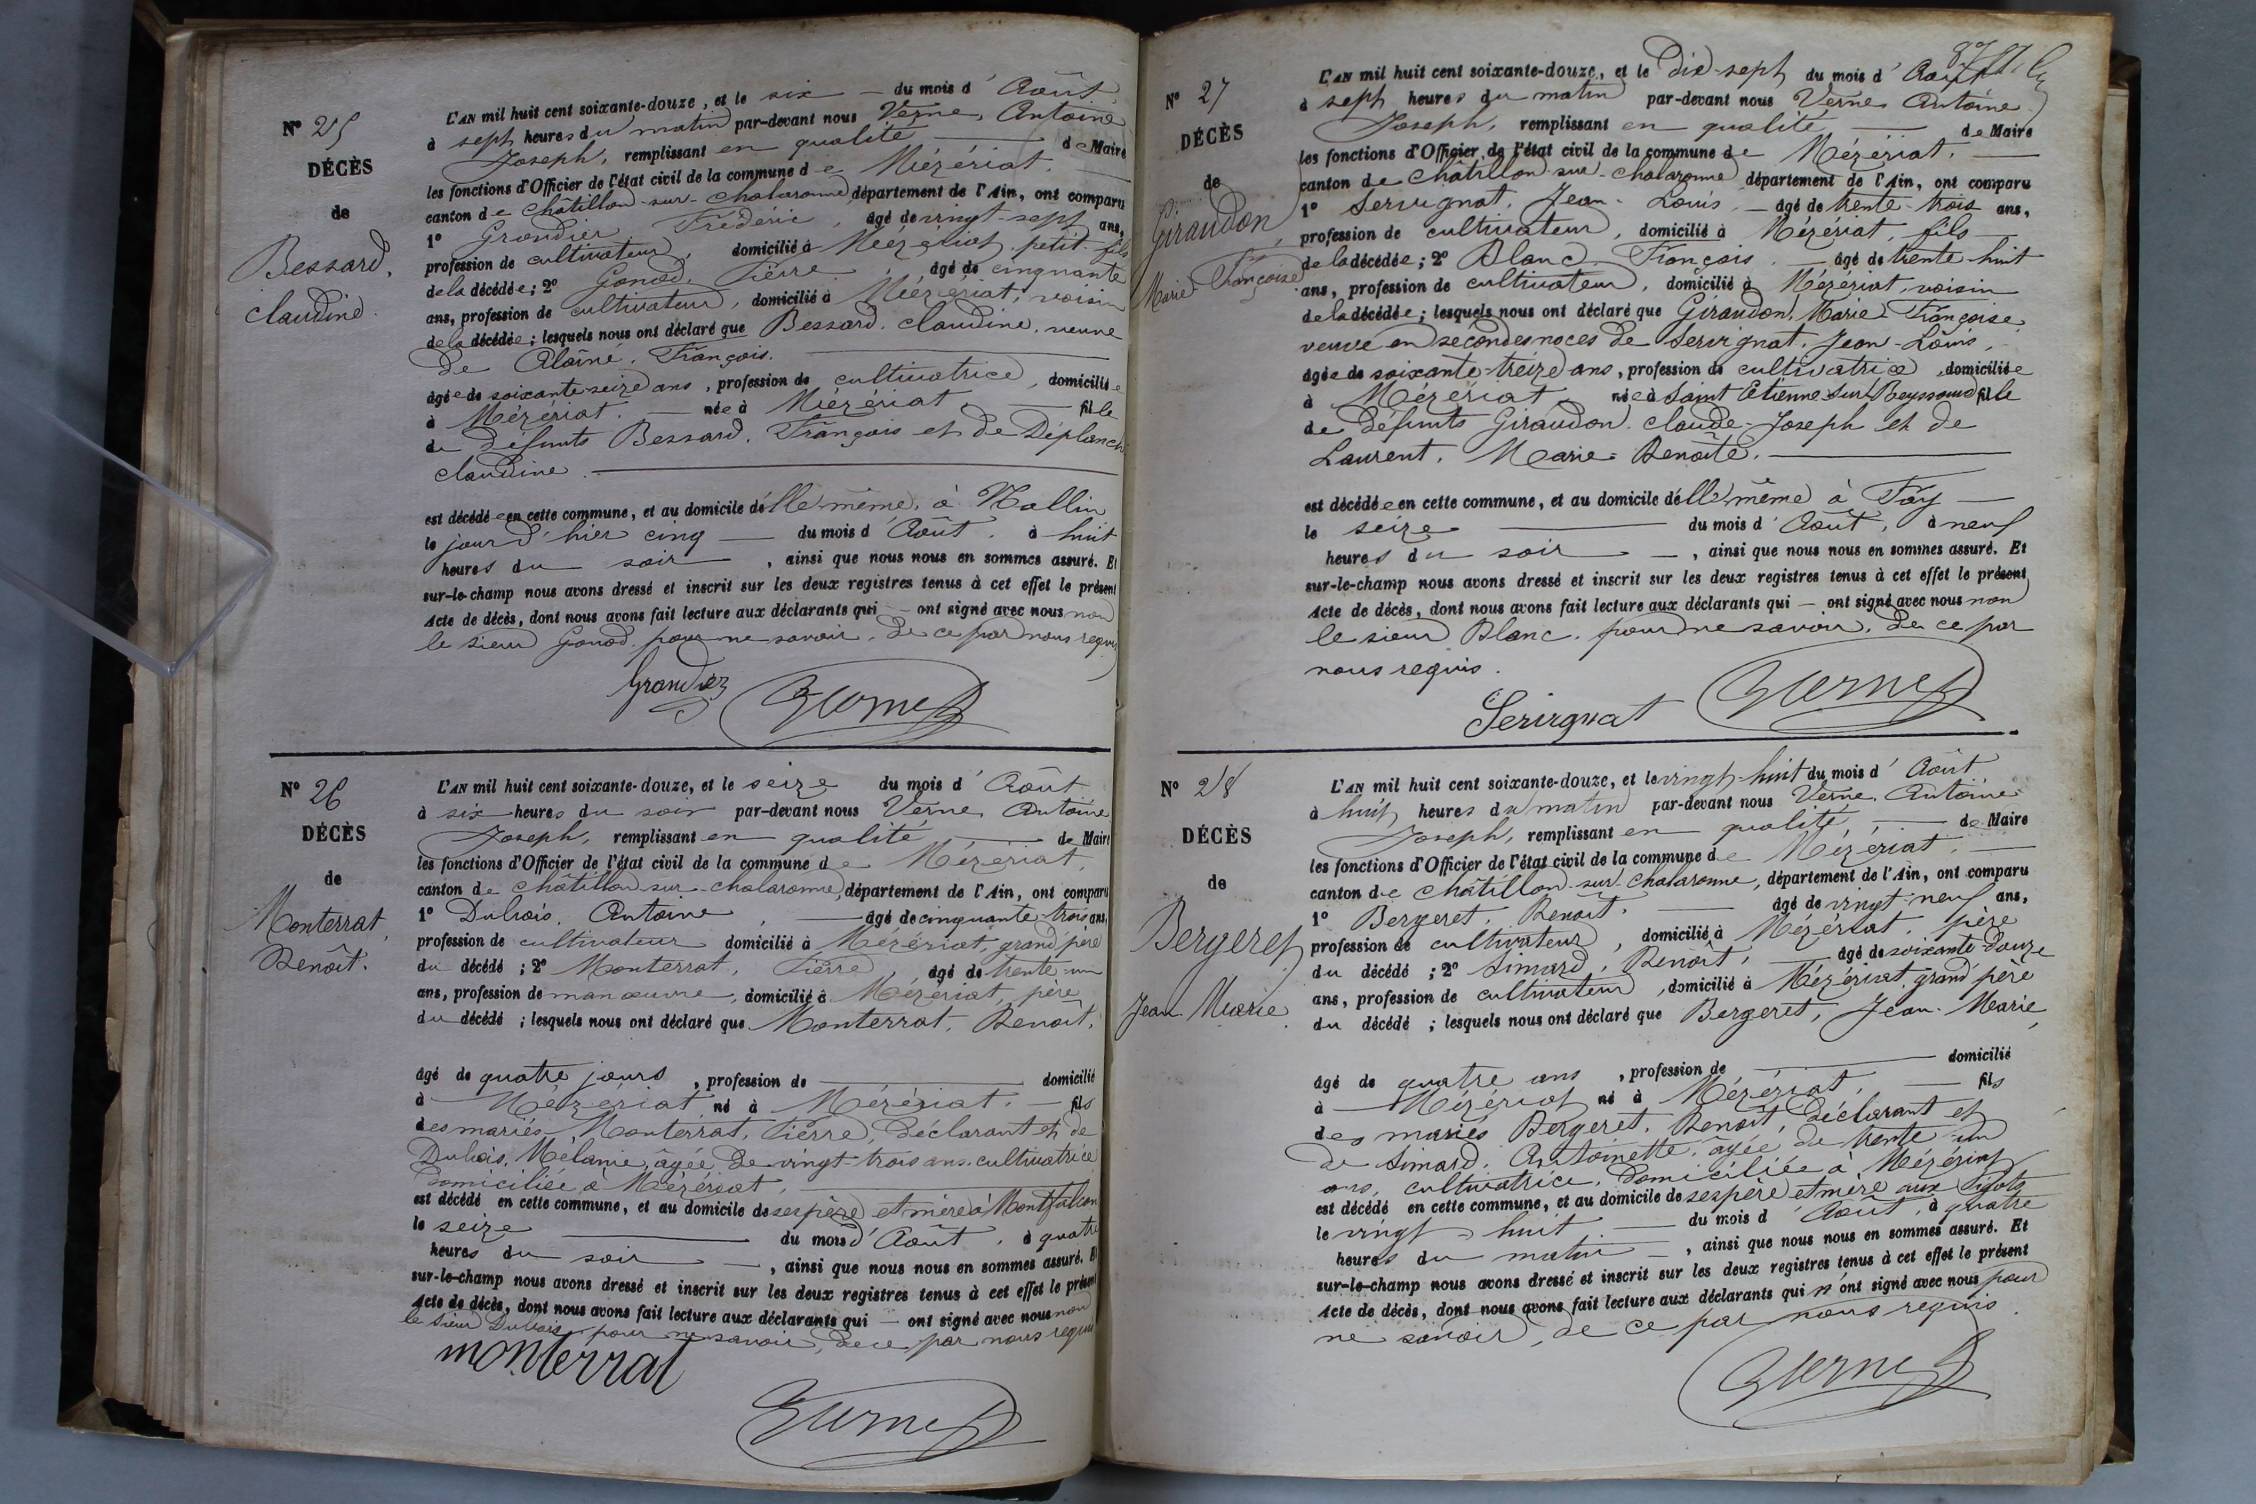 N° 25
DÉCÈS
de
Bessard,
Claudine.
L'AN mil huit cent soixante-douze, et le six — du mois d'Août,
à sept heures du matin par-devant nous Verne, Antoine
Joseph, remplissant en qualité — de Maire
les fonctions d'Officier de l'état civil de la commune de Mézériat.
canton de Châtillon-sur-Chalaronne, département de l'Ain, ont comparu
1° Grandier, Frédéric, âgé de vingt-sept ans,
profession de cultivateur, domicilié à Mézériat, petit-fils
de la décédée; 2° Gonod, Pierre, âgé de cinquante
ans, profession de cultivateur, domicilié à Mézériat, voisin
de la décédée; lesquels nous ont déclaré que Bessard, Claudine, veuve
de Alainé, François.
âgée de soixante-seize ans, profession de cultivatrice, domiciliée
à Mézériat. — née à Mézériat — fille
de défunts Bessard, François et de Déplanche
Claudine.
est décédée en cette commune, et au domicile d'elle même, à Mallin
le jour d'hier cinq — du mois d'Août, à huit
heures du soir —, ainsi que nous nous en sommes assuré. Et
sur-le-champ nous avons dressé et inscrit sur les deux registres tenus à cet effet le présent
Acte de décès, dont nous avons fait lecture aux déclarants qui — ont signé avec nous non
le sieur Gonod pour ne savoir, de ce par nous requis
Grandier Verne
N° 26
DÉCÈS
de
Monterrat,
Benoît.
L'AN mil huit cent soixante-douze, et le seize du mois d'Août
à six heures du soir par-devant nous Verne, Antoine
Joseph, remplissant en qualité — de Maire
les fonctions d'Officier de l'état civil de la commune de Mézériat,
canton de Châtillon-sur-Chalaronne, département de l'Ain, ont comparu
1° Dubois, Antoine, — âgé de cinquante-trois ans,
profession de cultivateur domicilié à Mézériat, grand'père
du décédé; 2° Monterrat, Pierre, âgé de trente-un
ans, profession de manœuvre, domicilié à Mézériat, père
du décédé; lesquels nous ont déclaré que Monterrat, Benoît,
âgé de quatre jours, profession de — domicilié
à Mézériat, né à Mézériat. — fils
des mariés Monterrat, Pierre, déclarant et de
Dubois, Mélanie, âgée de vingt-trois ans, cultivatrice
domiciliée à Mézériat,
est décédé en cette commune, et au domicile de ses père et mère à Montfalcon
le seize — du mois d'Août, à quatre
heures du soir —, ainsi que nous nous en sommes assuré. Et
sur-le-champ nous avons dressé et inscrit sur les deux registres tenus à cet effet le présent
Acte de décès, dont nous avons fait lecture aux déclarants qui — ont signé avec nous non
le sieur Dubois, pour ne savoir, de ce par nous requis
monterrat
Verne
N° 27
DÉCÈS
de
Giraudon,
Marie Françoise.
L'AN mil huit cent soixante-douze, et le Dix-sept du mois d'Août
à sept heures du matin par-devant nous Verne Antoine
Joseph, remplissant en qualité — de Maire
les fonctions d'Officier de l'état civil de la commune de Mézériat. —
canton de Châtillon-sur-Chalaronne département de l'Ain, ont comparu
1° Servignat, Jean-Louis, — âgé de trente-trois ans,
profession de cultivateur, domicilié à Mézériat, fils
de la décédée; 2° Blanc, François, — âgé de trente-huit
ans, profession de cultivateur, domicilié à Mézériat, voisin
de la décédée; lesquels nous ont déclaré que Giraudon, Marie Françoise,
veuve en secondes noces de Servignat, Jean-Louis,
âgée de soixante-treize ans, profession de cultivatrice domiciliée
à Mézériat, née à Saint Etienne sur Reyssouze fille
de défunts Giraudon, Claude-Joseph et de
Laurent, Marie-Benoîte. —
est décédée en cette commune, et au domicile d'elle même à Fay —
le seize — du mois d'Août, à neuf
heures du soir —, ainsi que nous nous en sommes assuré. Et
sur-le-champ nous avons dressé et inscrit sur les deux registres tenus à cet effet le présent
Acte de décès, dont nous avons fait lecture aux déclarants qui — ont signé avec nous non
le sieur Blanc, pour ne savoir, de ce par
nous requis.
Servignat Verne
N° 28
DÉCÈS
de
Bergeret
Jean Marie
L'AN mil huit cent soixante-douze, et le vingt-huit du mois d'Août
à huit heures du matin par-devant nous Verne, Antoine
Joseph, remplissant en qualité, — de Maire
les fonctions d'Officier de l'état civil de la commune de Mézériat. —
canton de Châtillon-sur-Chalaronne, département de l'Ain, ont comparu
1° Bergeret, Benoît. — âgé de vingt-neuf ans,
profession de cultivateur, domicilié à Mézériat, père
du décédé; 2° Simard, Benoît, — âgé de soixante-douze
ans, profession de cultivateur, domicilié à Mézériat, grand'père
du décédé; lesquels nous ont déclaré que Bergeret, Jean-Marie,
âgé de quatre ans, profession de — domicilié
à — Mézériat né à Mézériat, — fils
des mariés Bergeret, Benoît, déclarant et
de Simard, Antoinette, âgée de trente-un
ans, cultivatrice, domiciliée à Mézériat
est décédé en cette commune, et au domicile de ses père et mère aux Pigots
le vingt-huit — du mois d'Août, à quatre
heures du matin —, ainsi que nous nous en sommes assuré. Et
sur-le-champ nous avons dressé et inscrit sur les deux registres tenus à cet effet le présent
Acte de décès, dont nous avons fait lecture aux déclarants qui n'ont signé avec nous pour
ne savoir, de ce par nous requis.
Verne